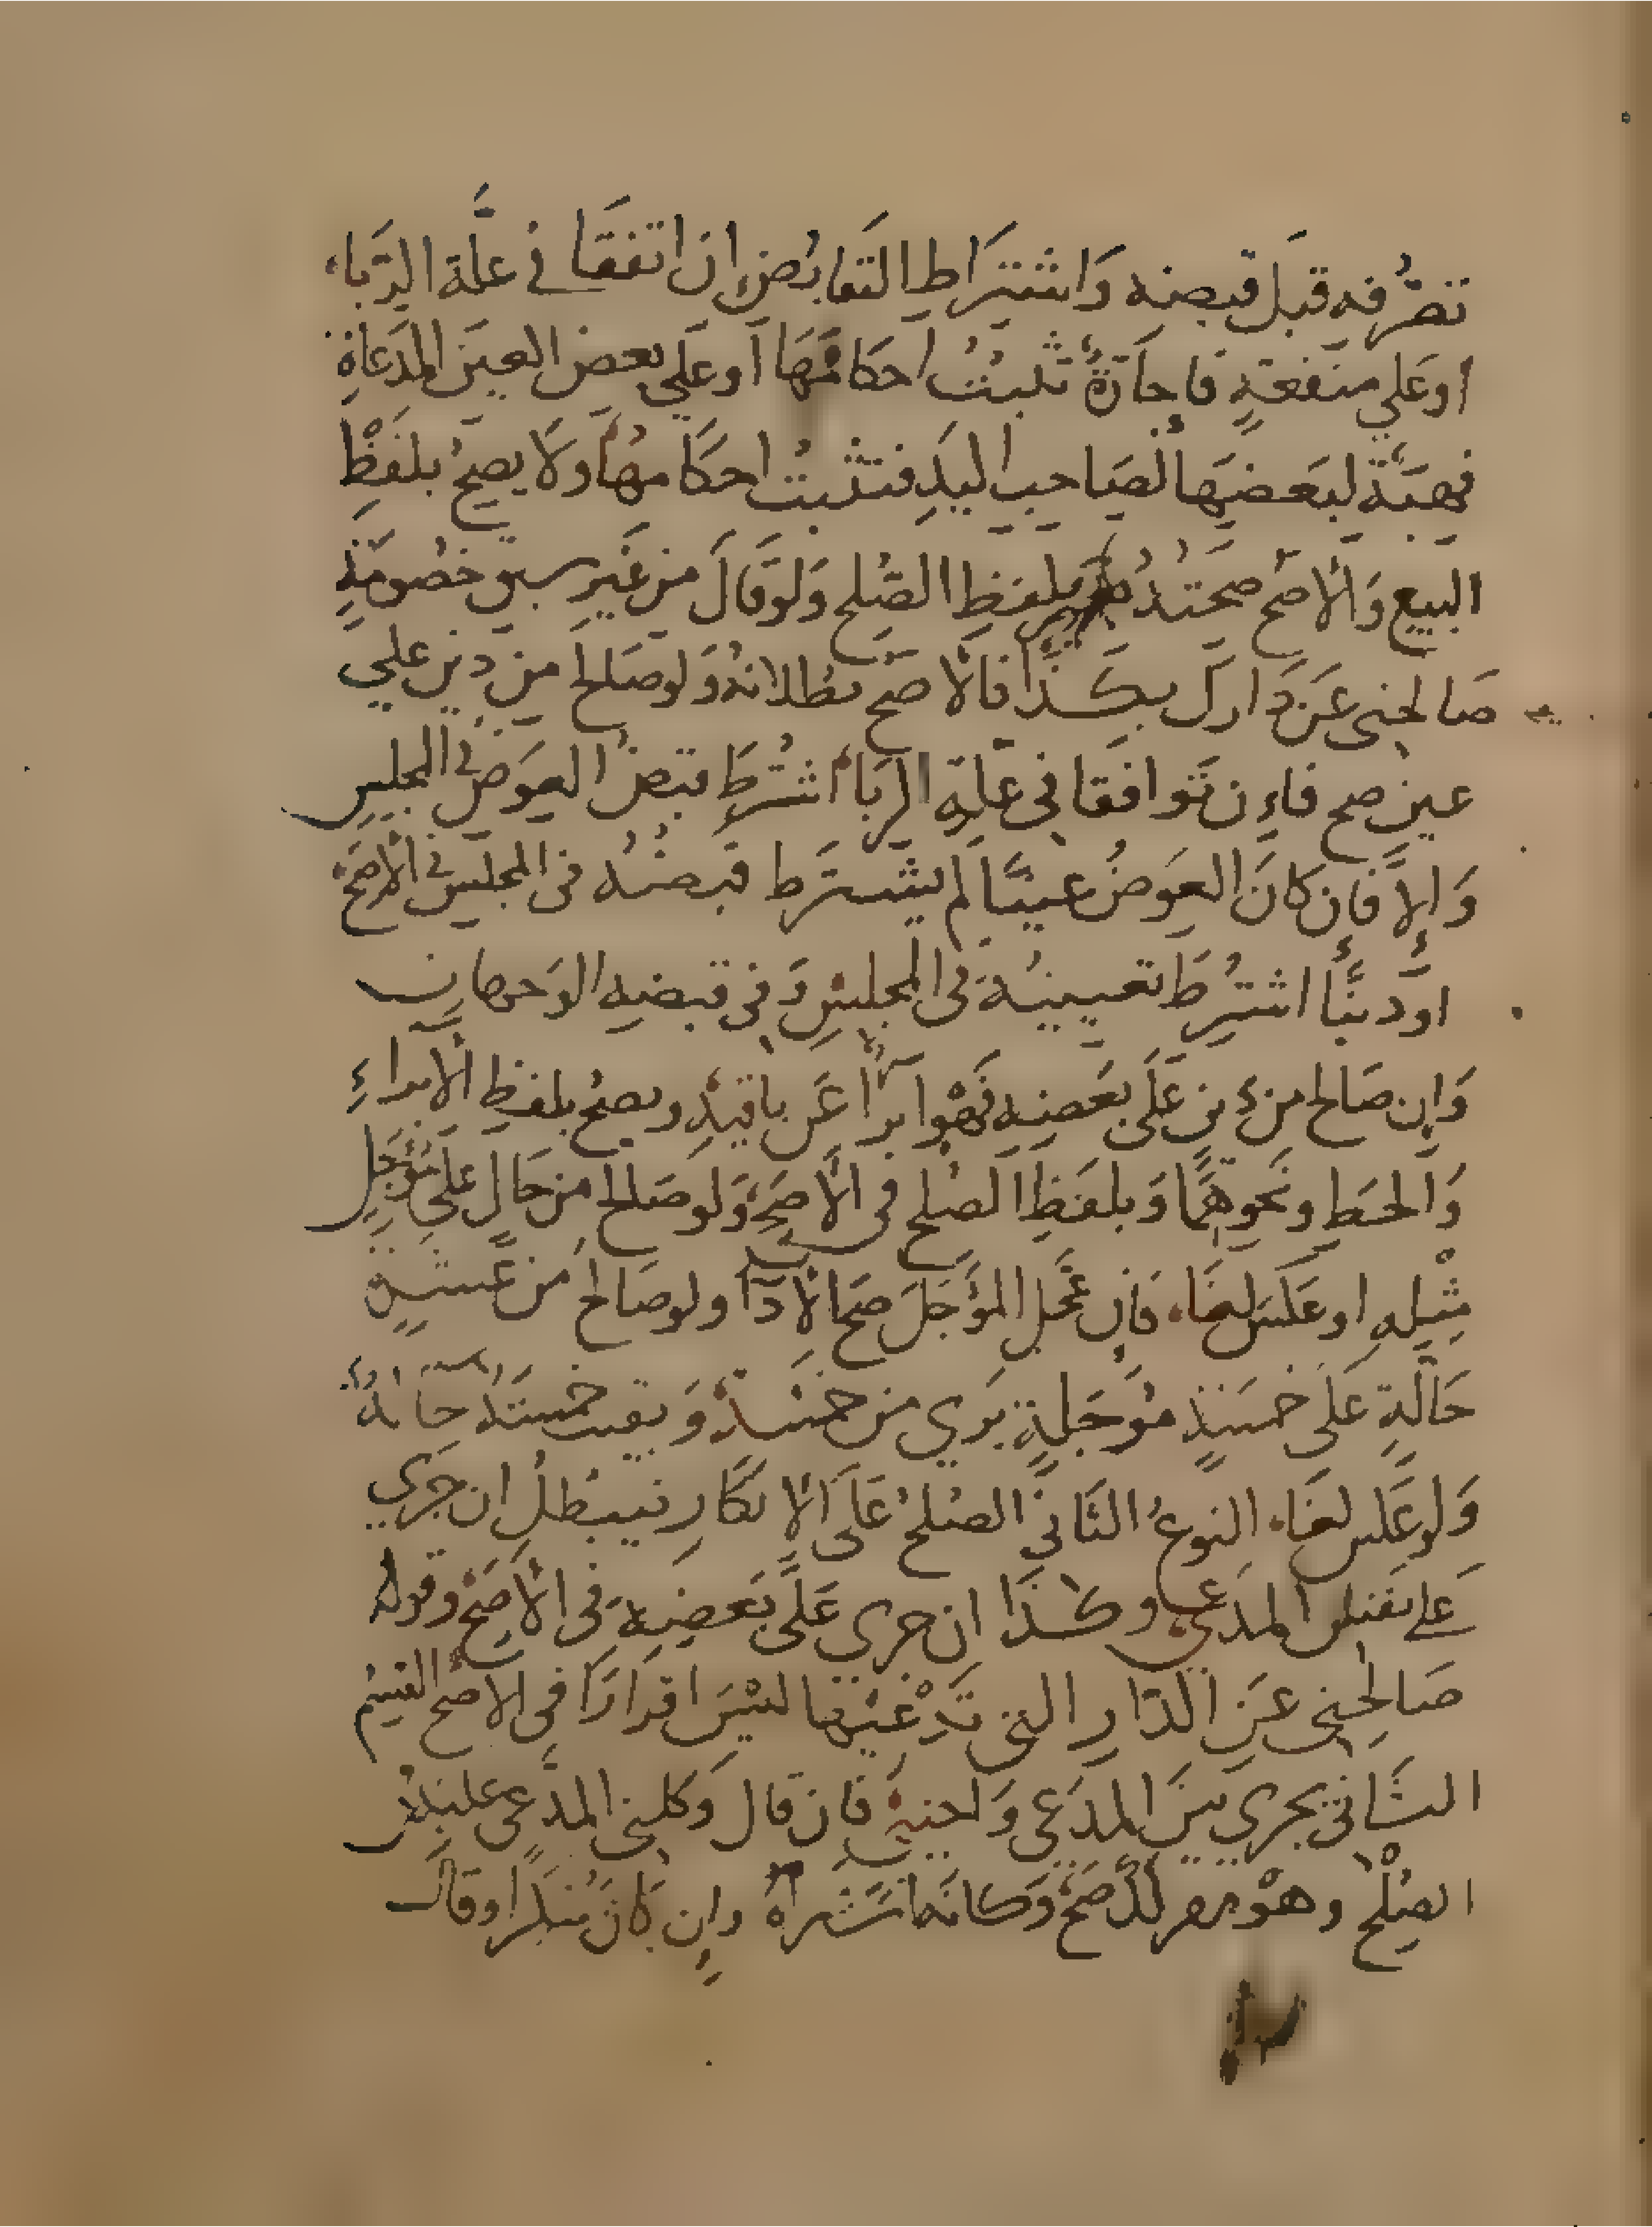 تصرُّفه قبل قبضه وَاشتراط التقابُض ان اتفقا في علَّة الرّباء
او علي منفعةٍ فاجَارَةٌ تثبتُ احكامُهَا او علي بعض العين المدعاةِ
فهبَةٌ لبَعضهَا لصَاحب اليدِ فتثبتُ احكامهُا ولا يصحُ بلفظِ
البيع وَالأصح صحتهُ بلفظ الصُلح وَلو قال من غير سبق خصُومَةٍ
صَالحني عَن دَارك بكذا فالأصح بطلانهُ وَلو صَالح من دين علي
عين صح فاءن توافقا في علة الربَاء اشتُرطَ قبض العِوَض في المجلسِ
وَإلاَّ فإن كانَ العِوَضُ عينًا لم يشترط قبضُهُ في المجلس في الأصَحِّ
اوْ دينًا اشترُطَ تعيينهُ في المجلسِ وَفي قبضهِ الوَجهان
وَان صَالح من دين عَلَى بَعضه فَهْو ابرأ عَن باقيهِ ويصحُ بلفظِ الابراءِ
وَالحط ونحوِهمَا وَبلفظِ الصُلح في الأصَحّ وَلو صَالح من حَالٍ علي مُؤجلٍ
مثْلِه او عكسَ لغَاء فَان عجل المؤَجلَ صحَ الأدَآ ولو صَالح من عشرةٍ
حَالّةٍ عَلَى خمسَةٍ مؤَجلةٍ بَري من خمسَةٌ وَبقيت خمسَةٌ حالةٌ
وَلو عَكس لغَاء النوعُ الثانِي الصُلحُ عَلَى الإنكارِ فيبْطلُ ان جَري
عَلي نفس المدعي وكذَا ان جري عَلَى بَعضِه في الأصَحّ وقوله
صَالحني عَن الدّار التي تدَّعيْها ليْسَ اقرارًا في الأصح القسمُ
الثاني يجري بين المدعي وَاجنبيٍ فان قال وَكلني المدَّعي عليهِ في
الصُلْح وهْو مقر لك صَحّ وَكانهَا شراه وان كانَ منكرا وقال